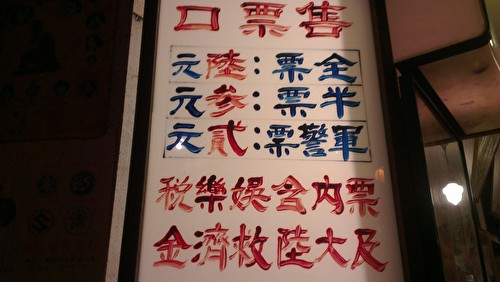 售票口
全票:陸元
半票:參元
軍警票:貳元
票內含娛樂稅
及大陸救濟金